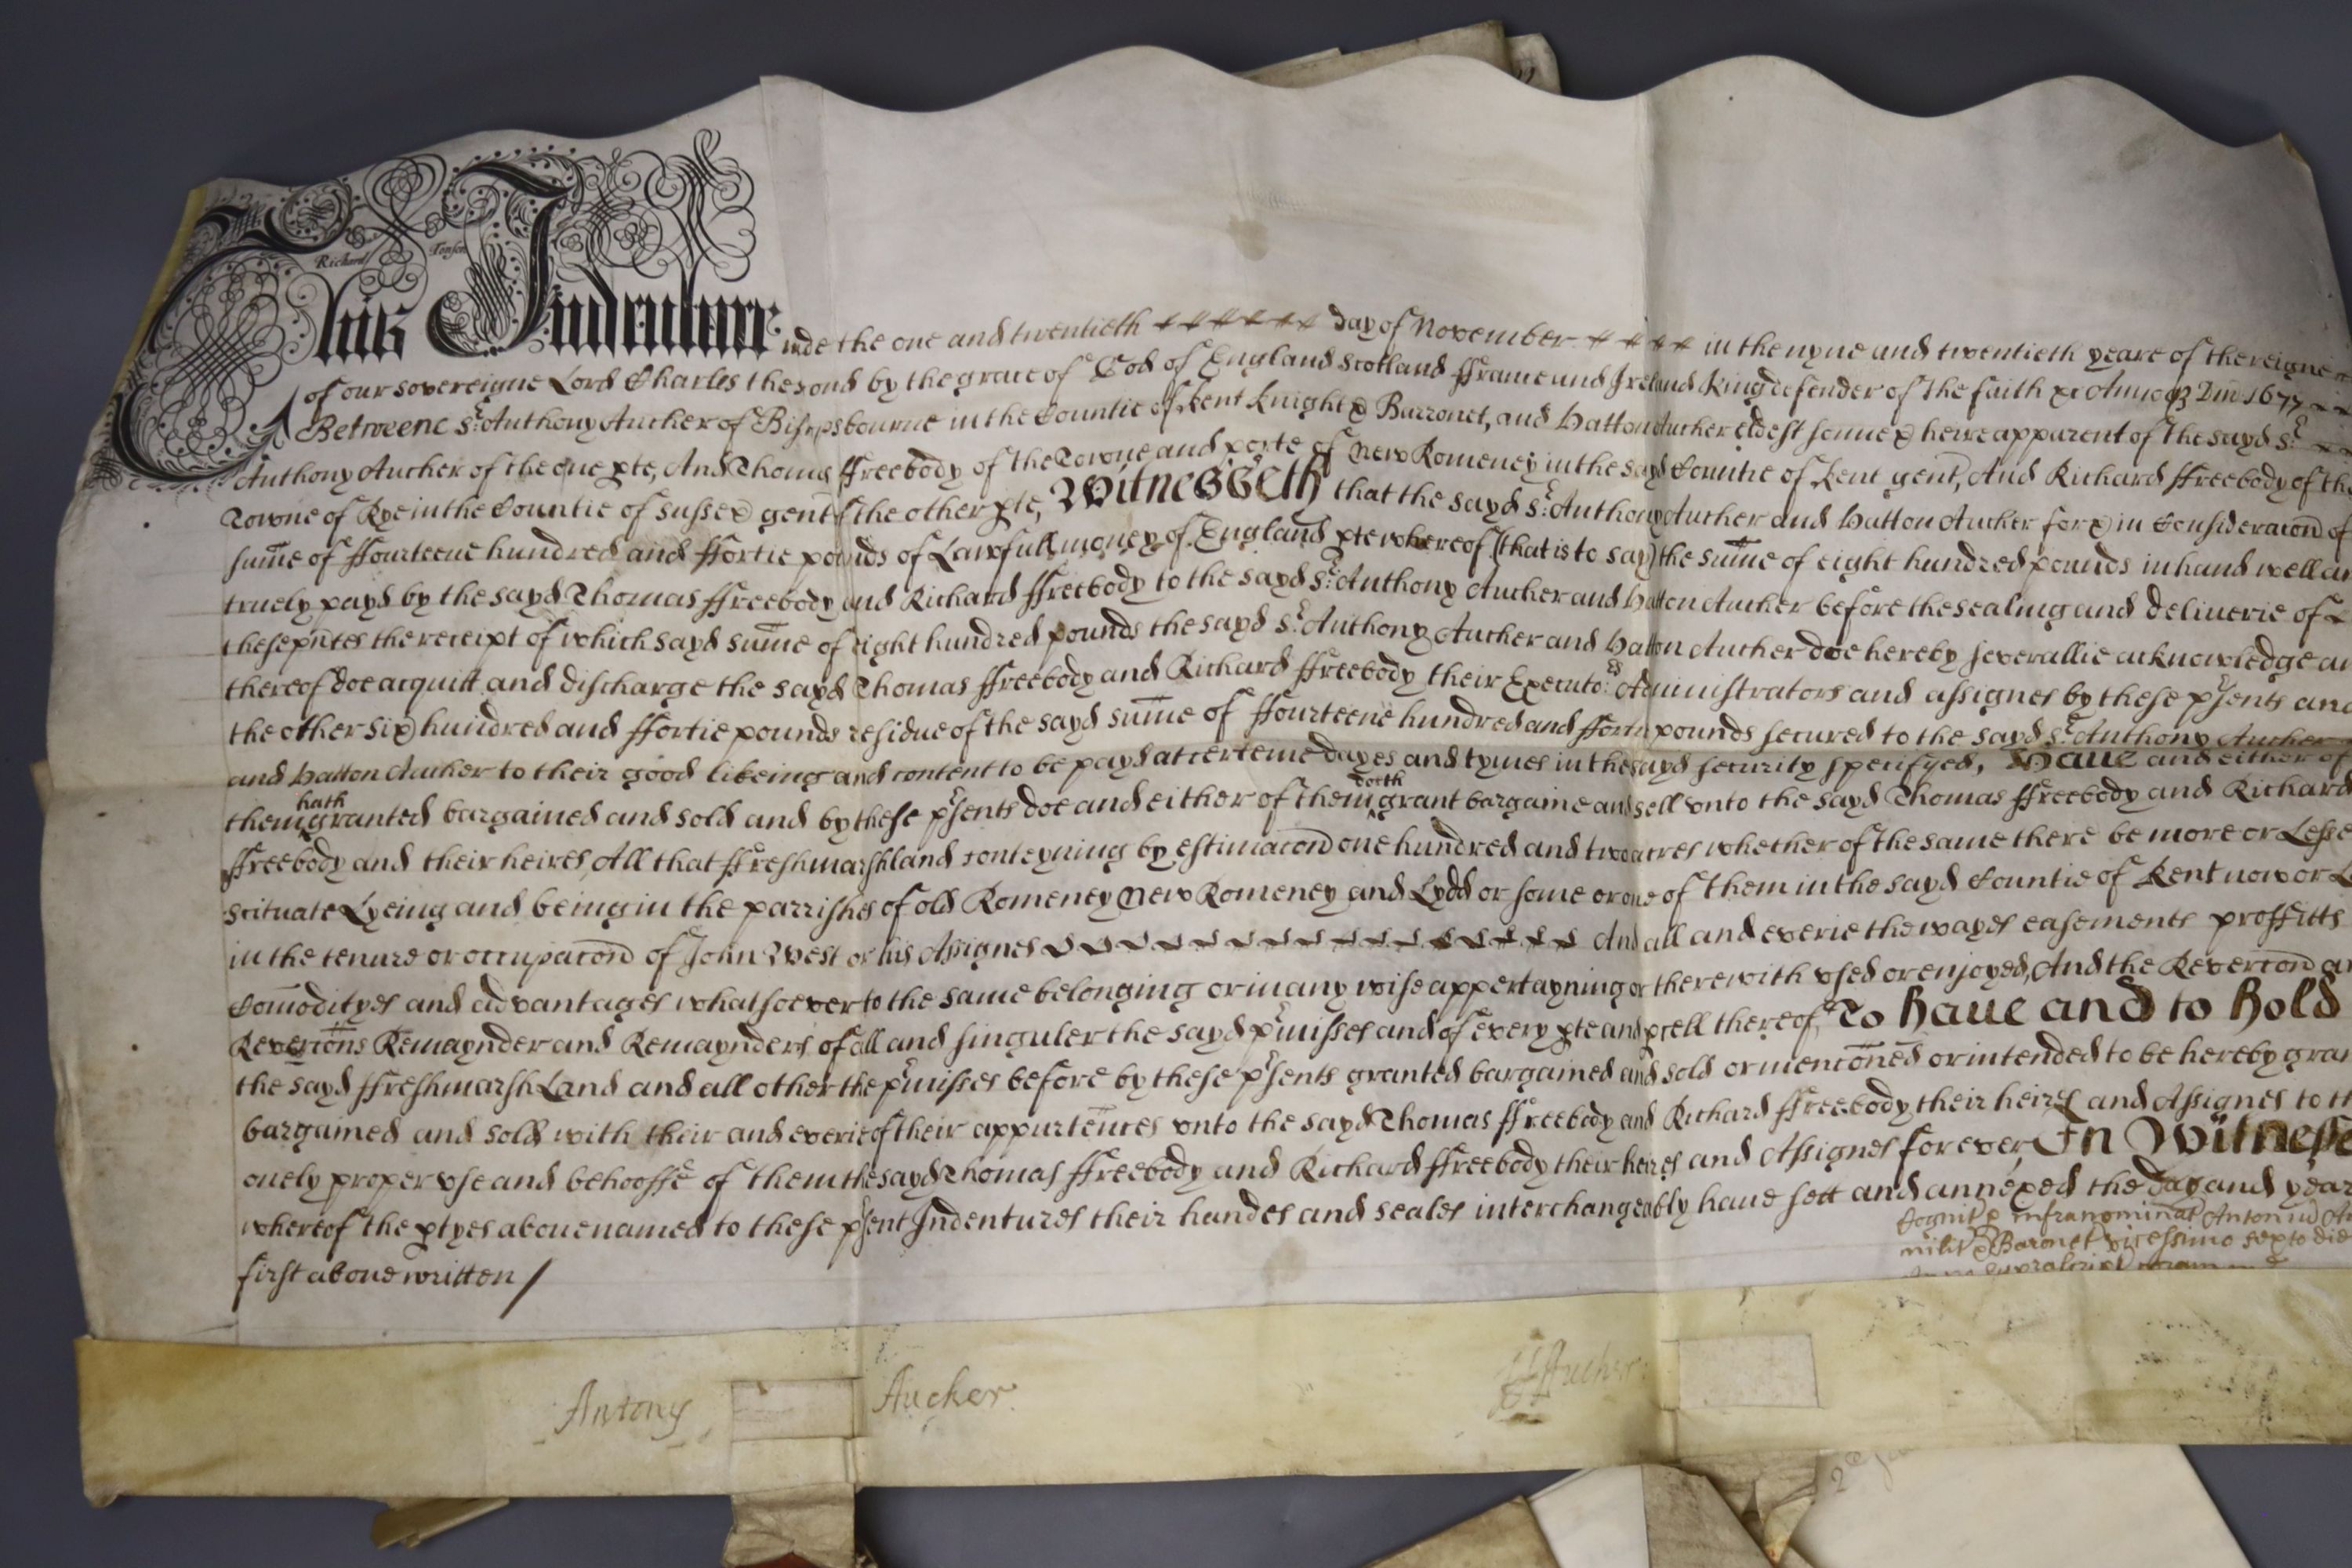 Richard Tonson
This Indenture made the one and twentieth day of November in the nyne and twentieth yeare of the reigne
of our sovereigne Lord Charles the second by the grace of God of England Scotland ffrance and Ireland King defender of the faith &c Annoq Dni 1677
Betweene Sr. Anthony Aucher of Bishopsbourne in the Countie of Kent Knight & Barronet, and Hatton Aucher eldest sonne & heire apparent of the sayd Sr.
Anthony Aucher of the one pte, And Thomas ffreebody of the Towne and porte of New Romeney in the sayd Countie of Kent gent, And Richard ffreebody of the
Towne of Rye in the Countie of Sussex gent of the other pte, Witnesseth that the sayd Sr. Anthony Aucher and Hatton Aucher for & in Consideracon of
sume of ffourteene hundred and ffortie pounds of Lawfull money of England pte whereof (that is to say) the sume of eight hundred pounds in hand well an
truely payd by the sayd Thomas ffreebody and Richard ffreebody to the sayd Sr. Anthony Aucher and Hatton Aucher before the sealing and deliverie of
these pntes the receipt of which sayd sume of eight hundred pounds the sayd Sr. Anthony Aucher and Hatton Aucher doe hereby severallie acknowledge an
thereof doe acquitt and discharge the sayd Thomas ffreebody and Richard ffreebody their Executors Administrators and assignes by these psents and
the other six hundred and ffortie pounds residue of the sayd sume of ffourteene hundred and ffortie pounds secured to the sayd Sr. Anthony Aucher
and Hatton Aucher to their good likeing and content to be payd att certeine dayes and tymes in the sayd security specifyed, Haue and either of
them hath granted bargained and sold and by these psents doe and either of them doeth grant bargaine and sell vnto the sayd Thomas ffreebody and Richard
ffreebody and their heires All that ffreshmarshland conteyning by estimacon one hundred and two acres whether of the same there be more or Lesse
scituate Lyeing and being in the parrishes of old Romeney New Romeney and Lydd or some or one of them in the sayd Countie of Kent now or L
in the tenure or occupacon of John West or his Assignes And all and everie the wayes easements proffitts
Comodityes and advantages whatsoever to the same belonging or in any wise appertayning or therewith vsed or enjoyed, And the Revercon an
Revercons Remaynder and Remaynders of all and singuler the sayd pmisses and of every pte and pcell thereof, To haue and to hold
the sayd ffreshmarsh Land and all other the pmisses before by these psents granted bargained and sold or menconed or intended to be hereby gran
bargained and sold with their and everie of their appurtences vnto the sayd Thomas ffreebody and Richard ffreebody their heires and Assignes to th
onely proper vse and behooffe of them the sayd Thomas ffreebody and Richard ffreebody their heires and Assignes for ever, In Witnesse
whereof the ptyes aboue named to these psent Indentures their handes and seales interchangeably haue sett and annexed the day and year
first aboue written /
Cognit p infranominat Antoniu Au
milit & Baronet vicessimo sexto die
Antony Aucher
H Aucher